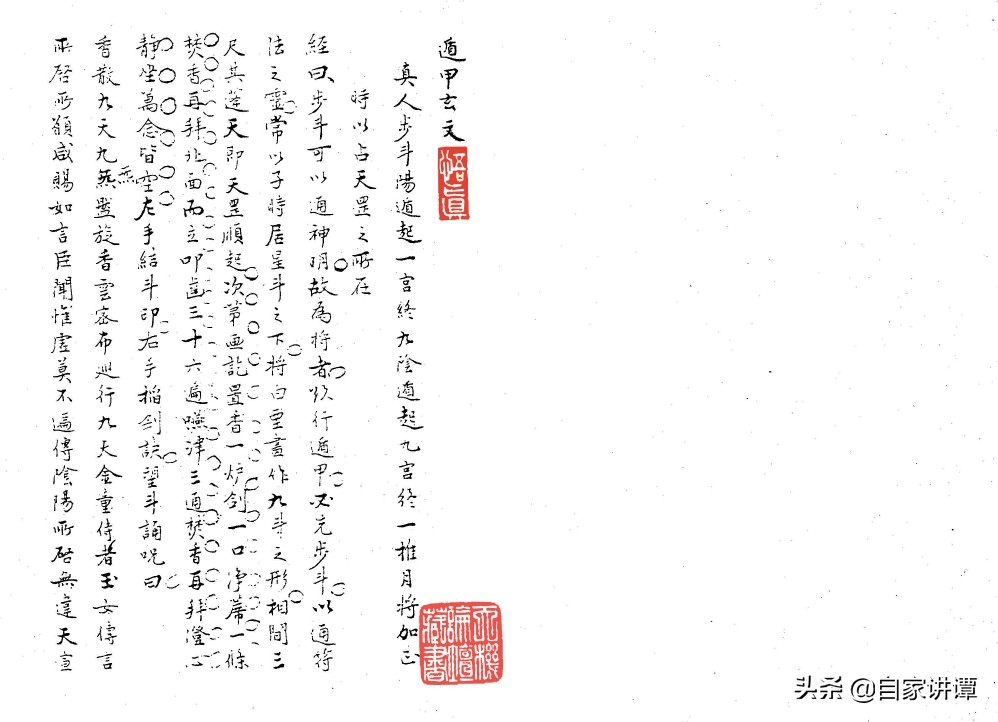 遁甲玄文
悟真
真人步斗陽遁起一宮終九陰遁起九宮終一推月將加正
時以占天罡之所在
經曰步斗可以通神明故為將者欲行遁甲必先步斗以通符
法之靈常以子時居星斗之下將白堊畫作九斗之形相間三
尺其蓬天即天罡順起次第畫訖置香一炉劍一口淨蓆一條
焚香再拜北面而立叩齒三十六遍嚥津三通焚香再拜澄心
靜坐萬念皆空左手結斗印右手掐劍訣望斗誦咒曰
香散九天九炁盤旋香雲密布廵行九天金童侍者玉女傳言
所啓所願咸賜如言臣聞惟虛莫不遍傳陰陽所啓無違天宣
天機論壇藏書
头条 @自家讲谭